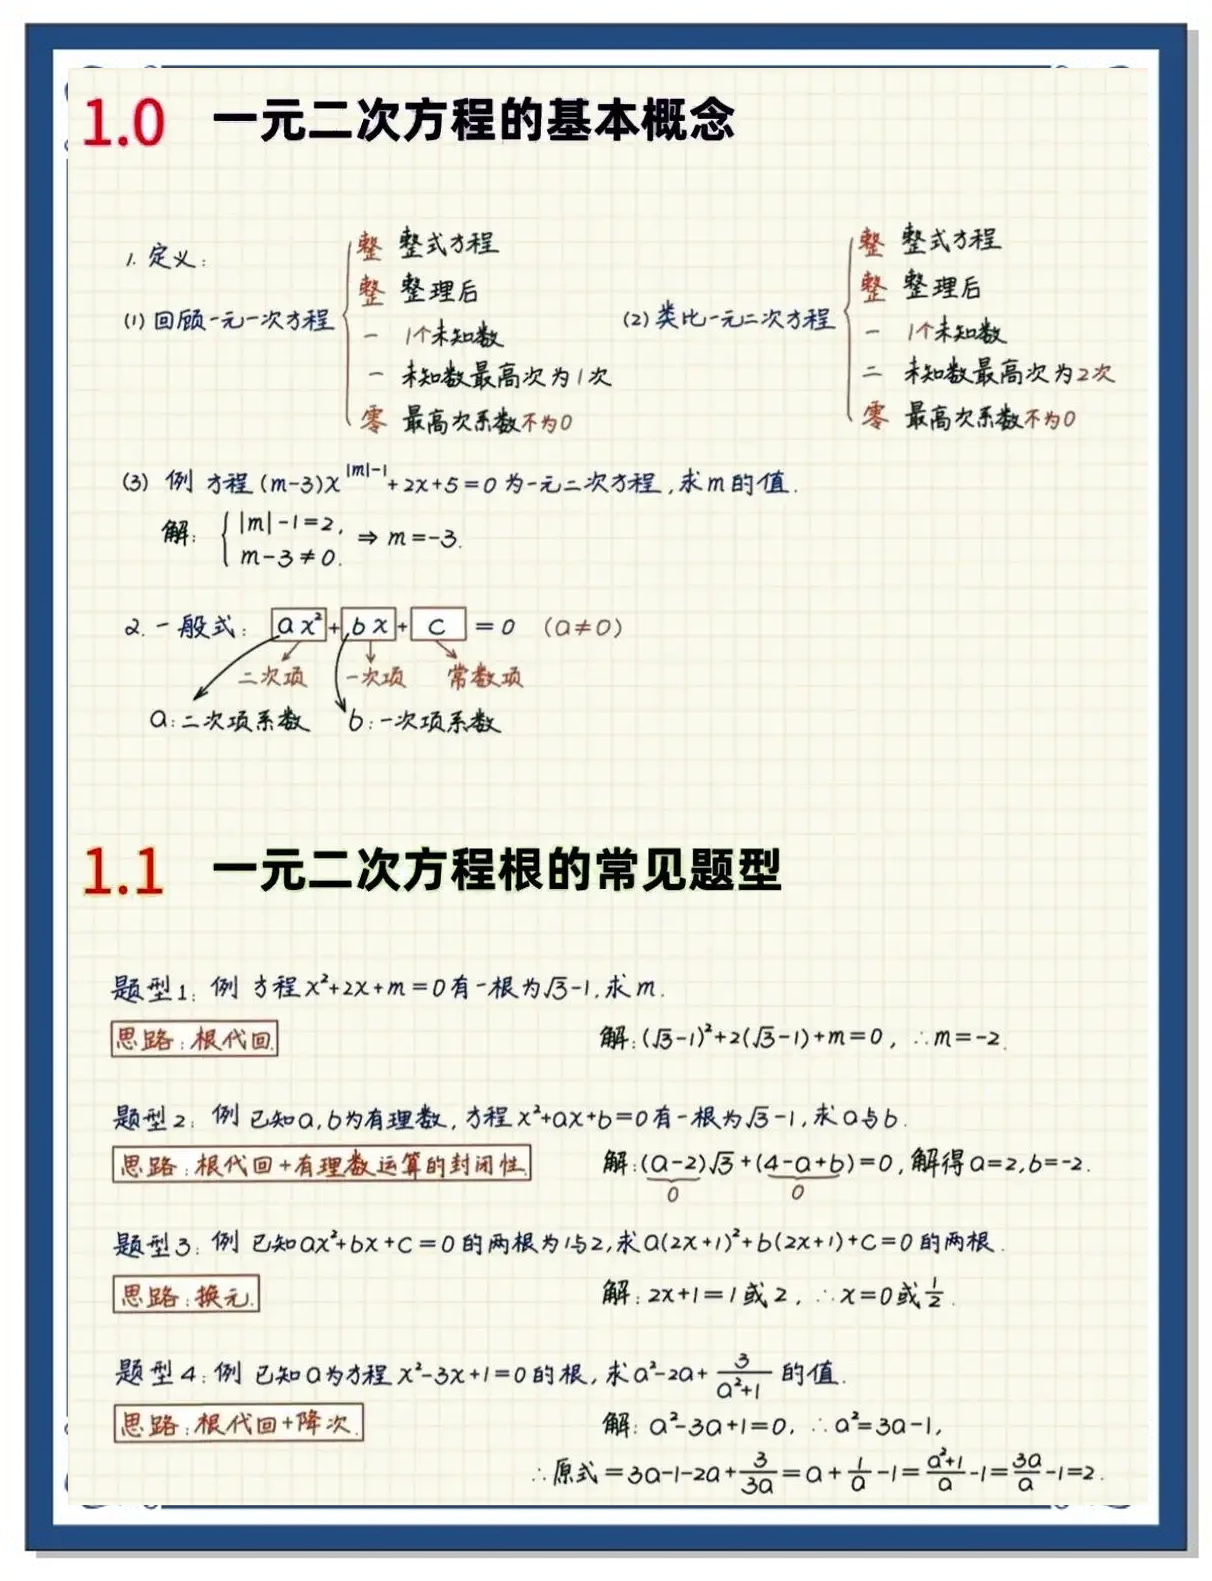 1.0 一元二次方程的基本概念
1. 定义:
(1) 回顾一元一次方程
整 整式方程
整 整理后
一 1个未知数
一 未知数最高次为1次
零 最高次系数不为0
(2) 类比一元二次方程
整 整式方程
整 整理后
一 1个未知数
二 未知数最高次为2次
零 最高次系数不为0
(3) 例 方程(m-3)x^{|m|-1}+2x+5=0为一元二次方程,求m的值.
解: { |m|-1=2, m-3≠0. ⇒ m=-3.
2. 一般式: ax²+bx+c=0 (a≠0)
二次项 一次项 常数项
a:二次项系数 b:一次项系数
1.1 一元二次方程根的常见题型
题型1: 例 方程x²+2x+m=0有一根为√3-1,求m.
思路:根代回. 解:(√3-1)²+2(√3-1)+m=0, ∴m=-2.
题型2: 例 已知a,b为有理数,方程x²+ax+b=0有一根为√3-1,求a与b.
思路:根代回+有理数运算的封闭性. 解:(a-2)√3+(4-a+b)=0,解得a=2,b=-2.
0 0
题型3: 例 已知ax²+bx+c=0的两根为1与2,求a(2x+1)²+b(2x+1)+c=0的两根.
思路:换元. 解:2x+1=1或2, ∴x=0或1/2.
题型4: 例 已知a为方程x²-3x+1=0的根,求a²-2a+3/(a²+1)的值.
思路:根代回+降次. 解: a²-3a+1=0, ∴a²=3a-1,
∴原式=3a-1-2a+3/(3a)=a+1/a-1=(a²+1)/a-1=3a/a-1=2.